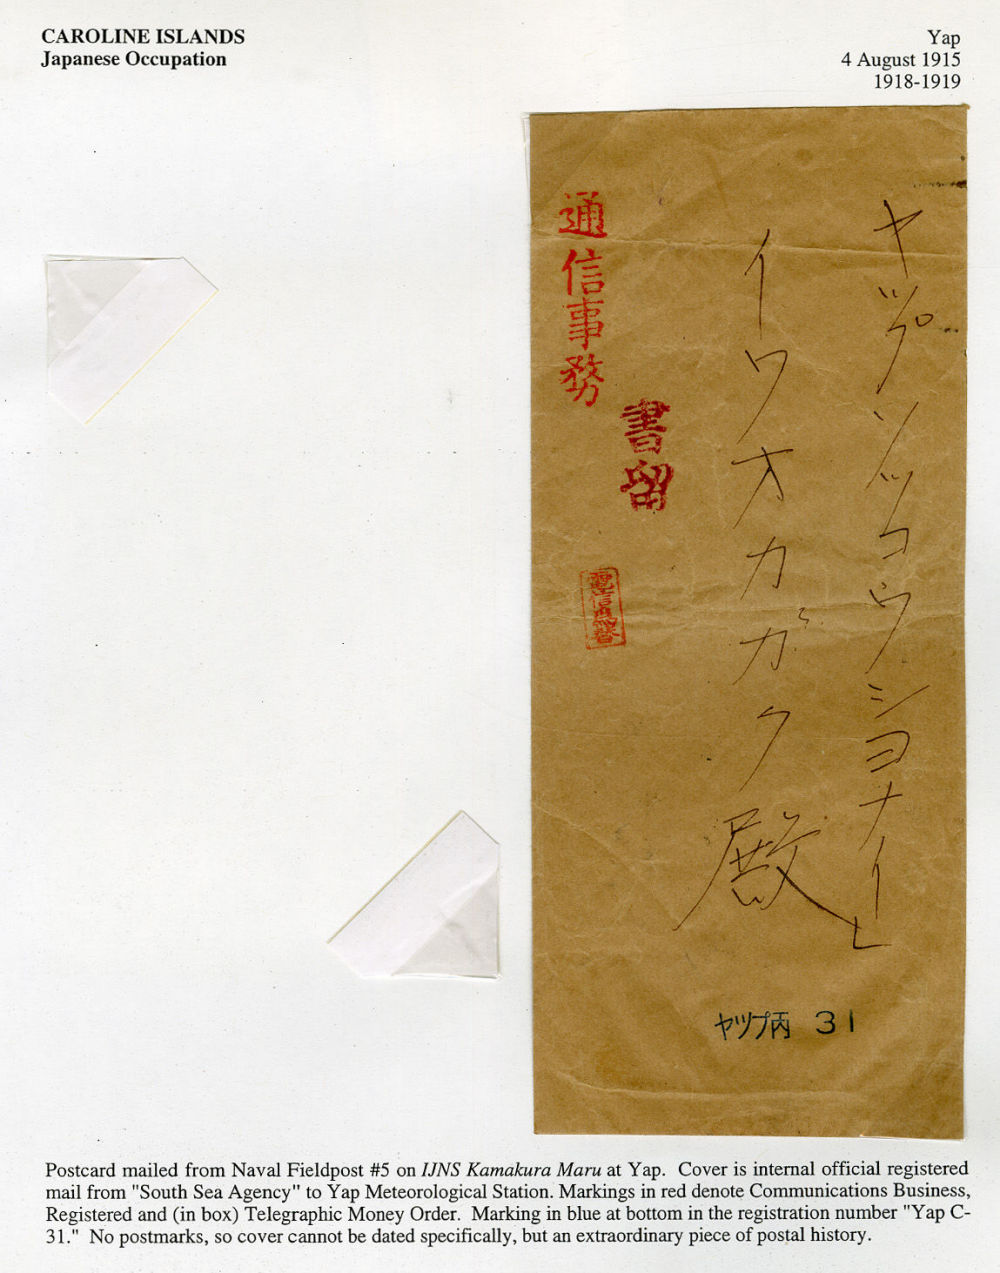 CAROLINE ISLANDS
Japanese Occupation
Yap
4 August 1915
1918-1919
ヤップソッコウショナイ
イワオカガク殿
通信事務
書留
電信為替
ヤップ丙 31
Postcard mailed from Naval Fieldpost #5 on IJNS Kamakura Maru at Yap. Cover is internal official registered
mail from "South Sea Agency" to Yap Meteorological Station. Markings in red denote Communications Business,
Registered and (in box) Telegraphic Money Order. Marking in blue at bottom in the registration number "Yap C-
31." No postmarks, so cover cannot be dated specifically, but an extraordinary piece of postal history.